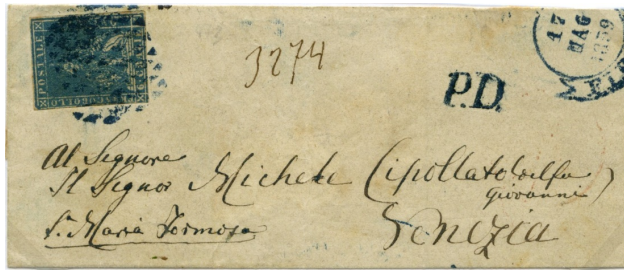 POSTALE
BOLLO
3274
P.D.
17
MAG
1859
Al Signore
Il Signor Michele Cipollato
Giovanni)
Sa. Maria Formosa Venezia